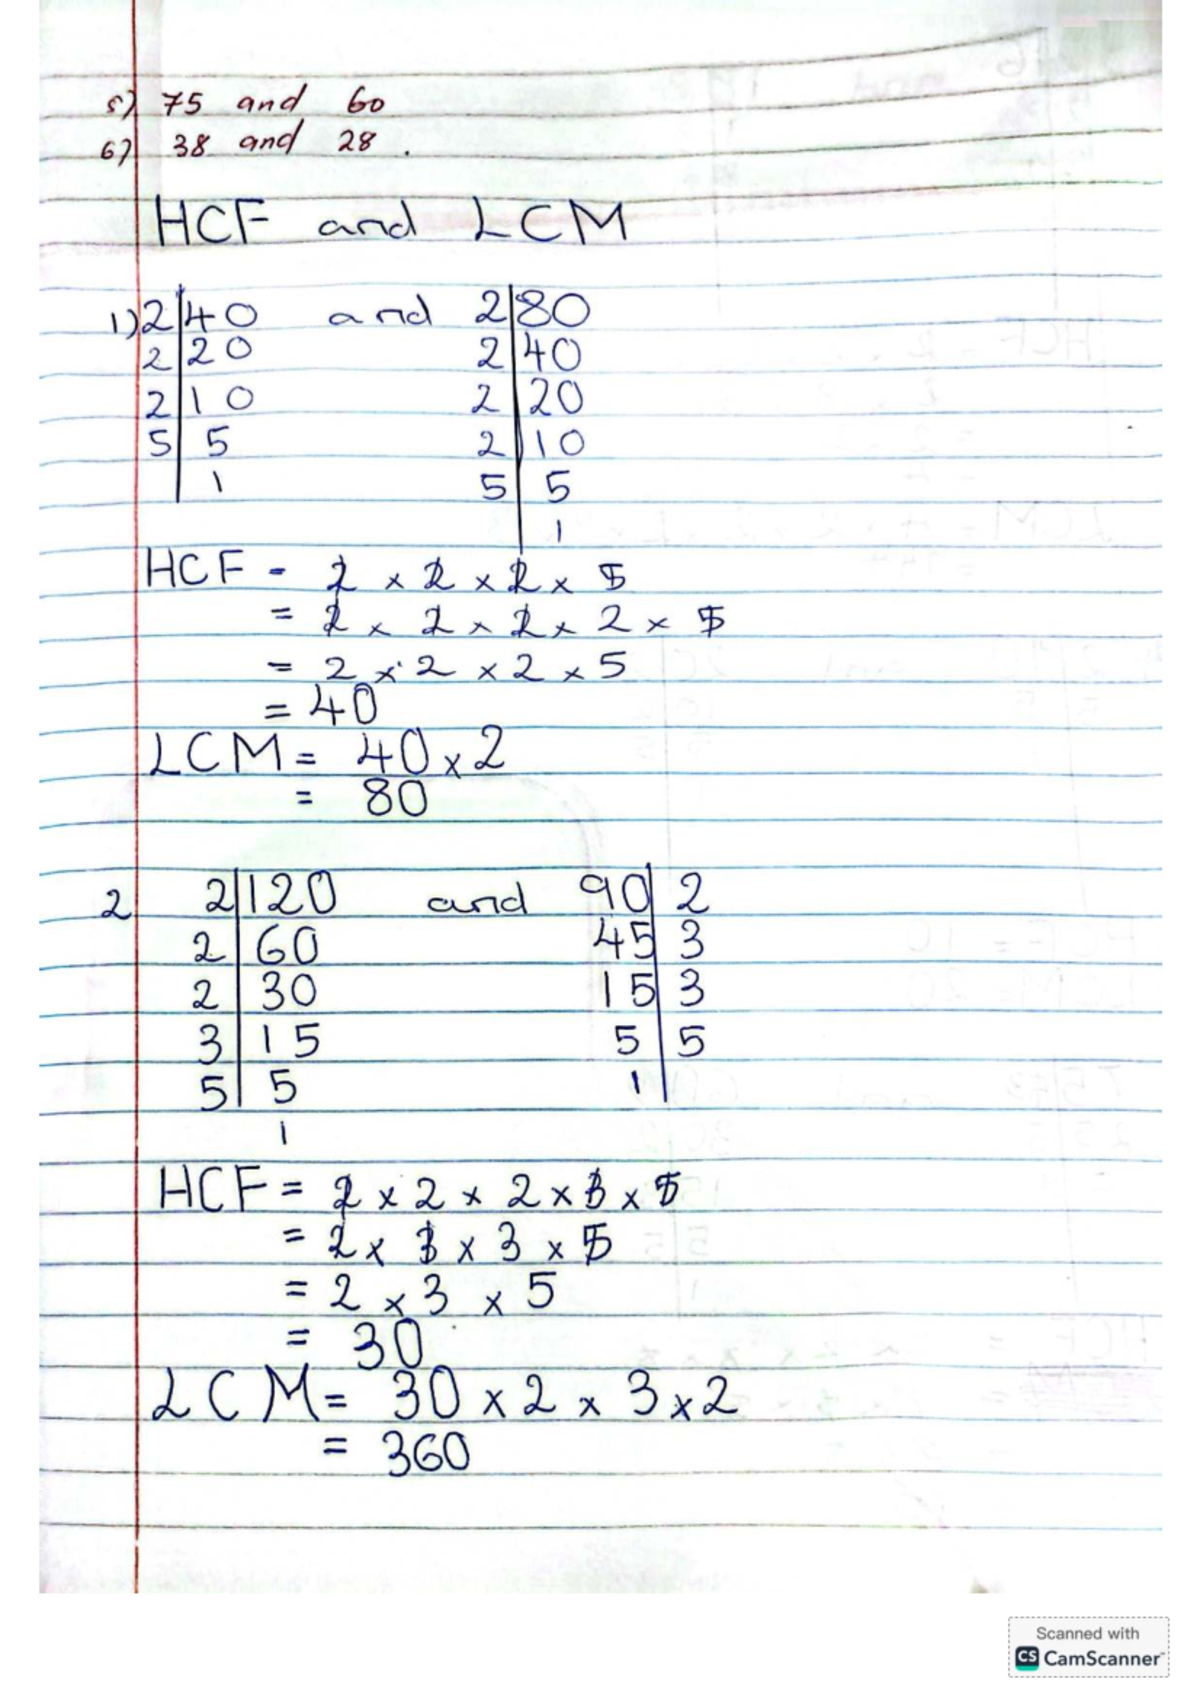 5) 75 and 60
6) 38 and 28.
HCF and LCM
1) 2|40 and 2|80
2|20 2|40
2|10 2|20
5|5 2|10
|1 5|5
|1
HCF - 2 × 2 × 2 × 5
= 2 × 2 × 2 × 2 × 5
= 2 × 2 × 2 × 5
= 40
LCM = 40 × 2
= 80
2 2|120 and 90|2
2|60 45|3
2|30 15|3
3|15 5|5
5|5 1|
1
HCF = 2 × 2 × 2 × 3 × 5
= 2 × 3 × 3 × 5
= 2 × 3 × 5
= 30
LCM = 30 × 2 × 3 × 2
= 360
Scanned with
CS CamScanner